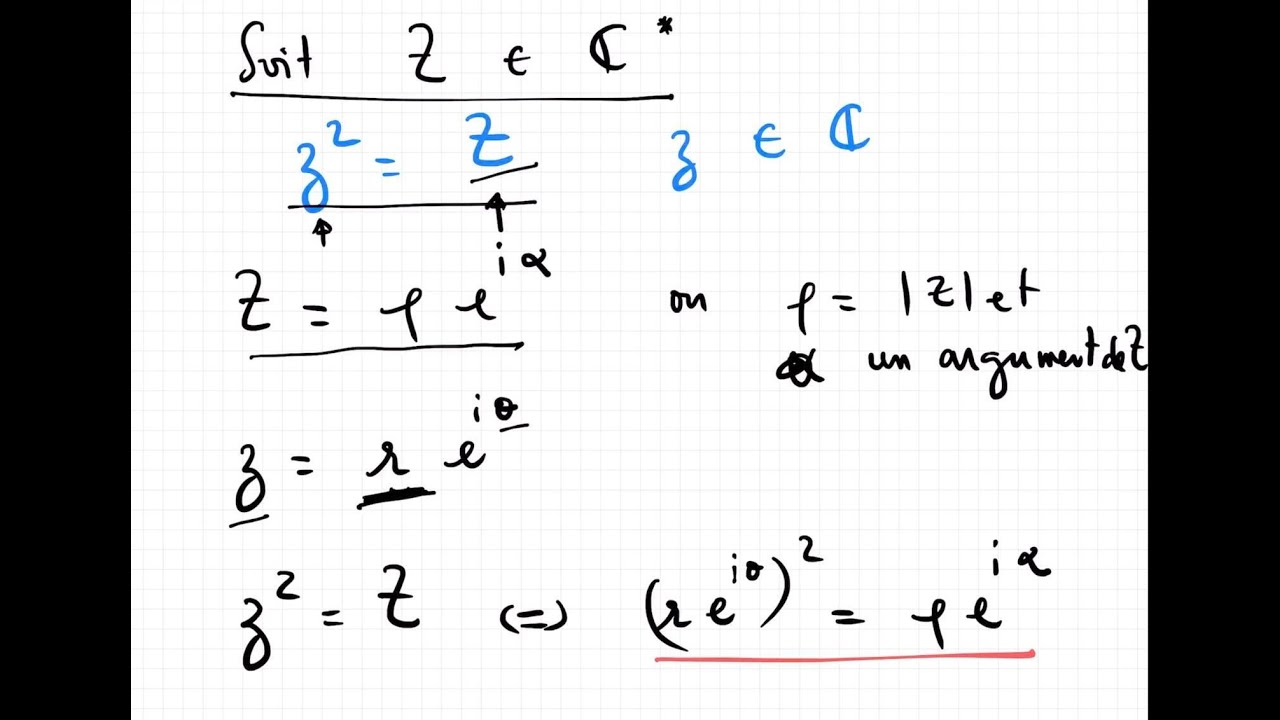 Soit Z ∈ ℂ*
z² = Z z ∈ ℂ
Z = ρ e^{iα} où ρ = |Z| et
α un argument de Z
z = r e^{iθ}
z² = Z ⇔ (r e^{iθ})² = ρ e^{iα}